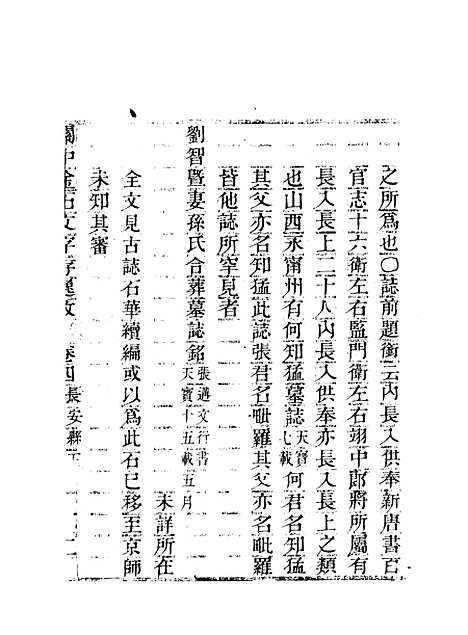 之所爲也〇誌前題銜云內長入供奉新唐書百
官志十六衛左右監門衛左右翊中郎將所屬有
長入長上二十八內長入供奉亦長入長上之類
也山西永甯州有何知猛墓誌天寶七載何君名知猛
其父亦名知猛此誌張君名毗羅其父亦名毗羅
皆他誌所罕見者
劉智曁妻孫氏合葬墓誌銘張遘文行書天寶十五載五月
未詳所在
全文見古誌石華續編或以爲此石已移至京師
未知其審
關中金石文字存逸攷 卷四長安縣